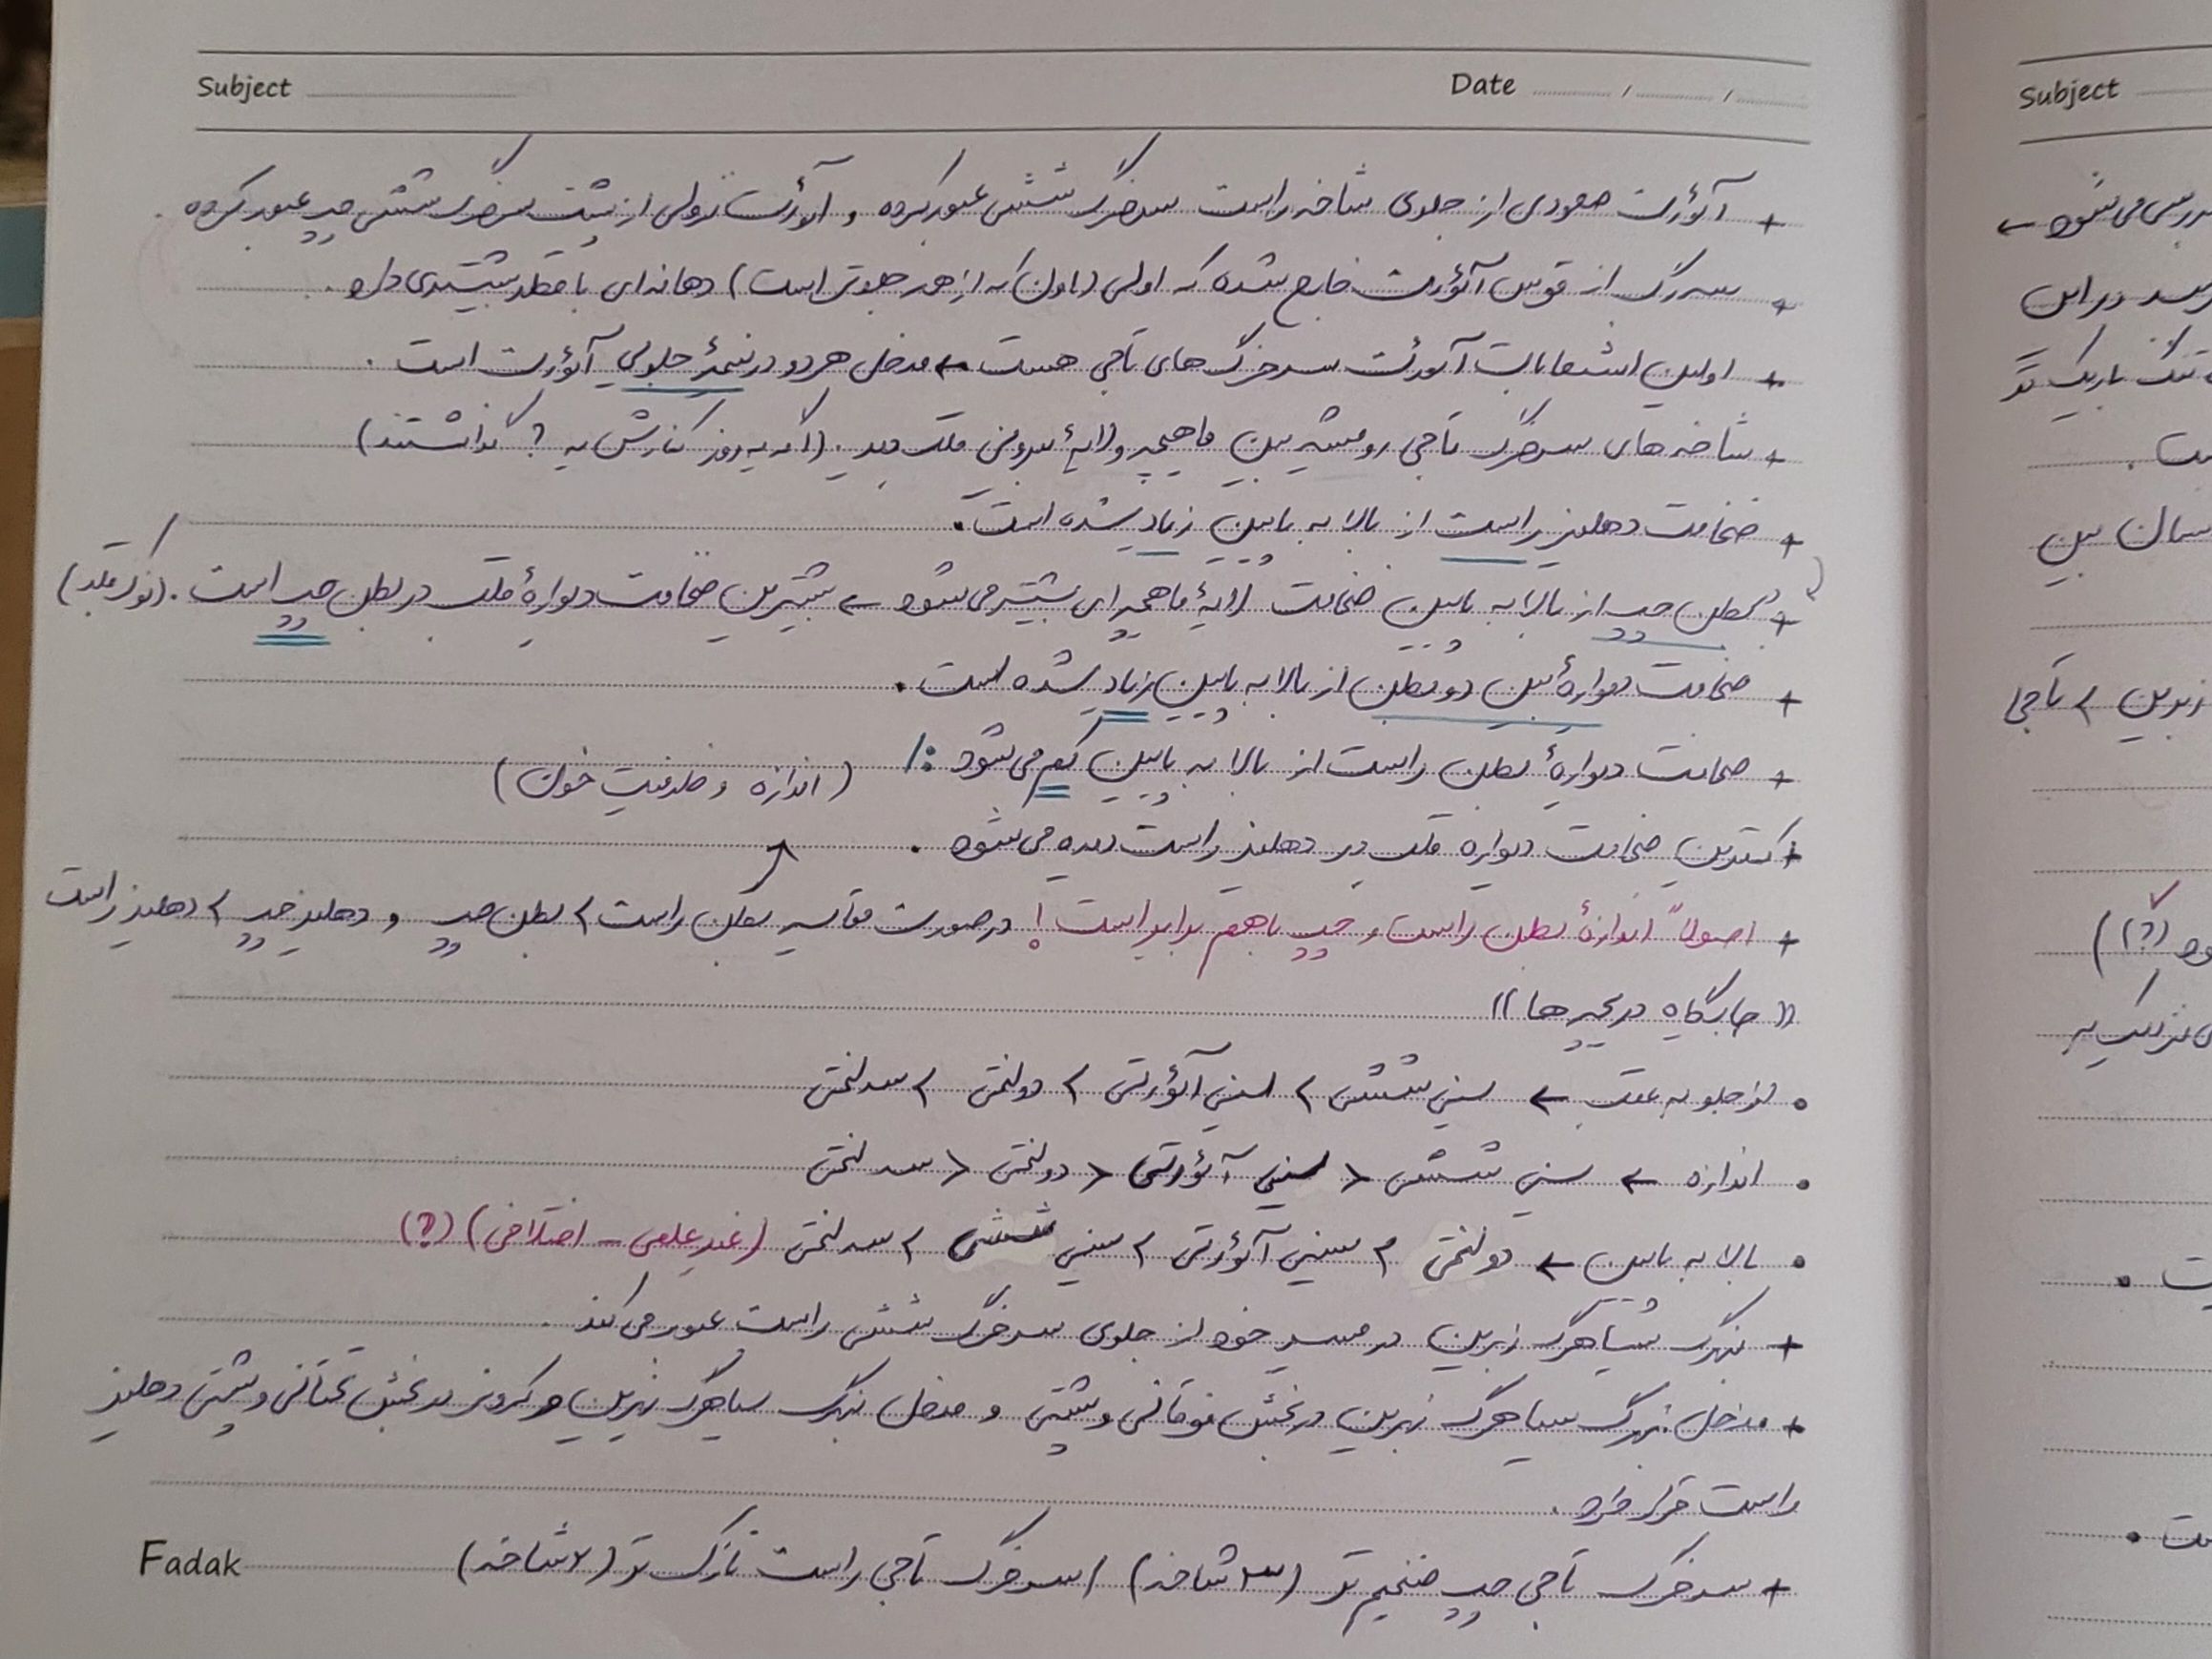 Subject
Date / /
+ آئورت صعودی از جلوی شاخه راست سرخرگ ششی عبور کرده و آئورت نزولی از پشت سرخرگ ششی چپ عبور کرده.
+ سه رگ از قوس آئورت خارج شده که اولی (اون که از همه جلوتر است) دهانه‌ای با قطر بیشتری دارد.
+ اولین انشعابات آئورت سرخرگ های تاجی هست ← مدخل هر دو در نیمهٔ جلویی آئورت است.
+ شاخه های سرخرگ تاجی رو میشه بین ماهیچه و لایهٔ بیرونی قلب دید. (اگه یه روز کنارش یه ? گذاشتند)
+ ضخامت دهلیز راست از بالا به پایین زیاد شده است.
+ بطن چپ از بالا به پایین ضخامت لایهٔ ماهیچه ای بیشتر می شود ← بیشترین ضخامت دیوارهٔ قلب در بطن چپ است. (نوک قلب)
+ ضخامت دیوارهٔ بین دو بطن از بالا به پایین زیاد شده است.
+ ضخامت دیوارهٔ بطن راست از بالا به پایین کم می شود :/
(اندازه و ظرفیت خون)
+ کمترین ضخامت دیواره قلب در دهلیز راست دیده می شود.
+ اصولاً اندازهٔ بطن راست و چپ باهم برابر است! در صورت مقایسه بطن راست > بطن چپ و دهلیز چپ > دهلیز راست
« جایگاه دریچه ها »
• از جلو به عقب ← سینی ششی > سینی آئورتی > دولختی > سه لختی
• اندازه ← سینی ششی < سینی آئورتی < دولختی < سه لختی
• بالا به پایین ← دولختی > سینی آئورتی > سینی ششی > سه لختی (غیرعلمی - اختلافی) (?)
+ بزرگ سیاهرگ زبرین در مسیر خود از جلوی سرخرگ ششی راست عبور می کند.
+ مدخل بزرگ سیاهرگ زبرین در بخش فوقانی و پشتی و مدخل بزرگ سیاهرگ زیرین و کرونر در بخش تحتانی و پشتی دهلیز
راست قرار دارد.
+ سرخرگ تاجی چپ ضخیم تر (۳ شاخه) / سرخرگ تاجی راست نازک تر (۲ شاخه)
Fadak
Subject
بررسی می شود ←
در این
باریک تر
بین
زبرین > تاجی
(?)
نزدیک به